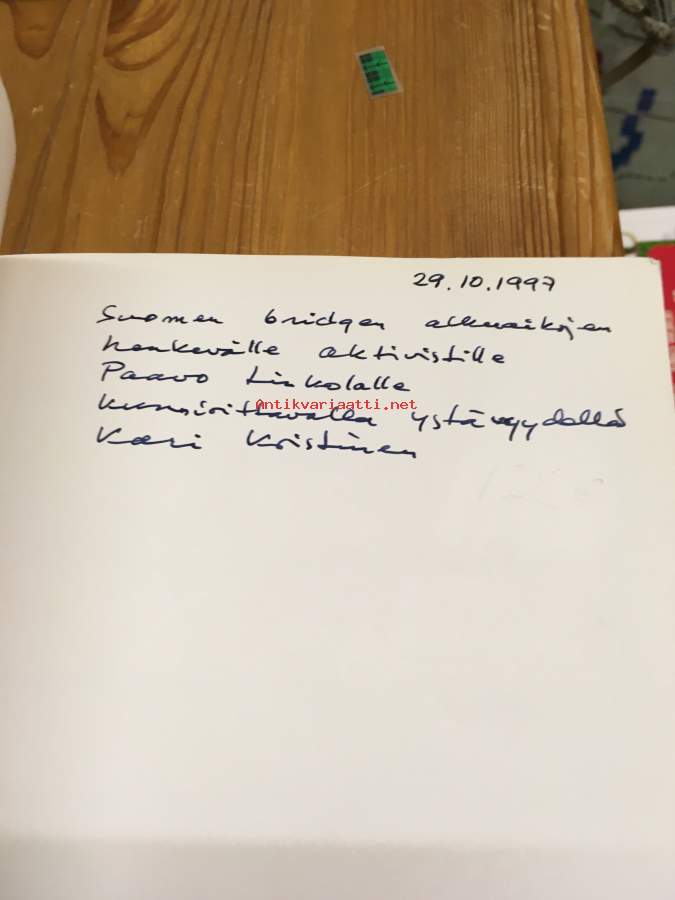 29.10.1997
Suomen bridgen alkuaikojen
henkevälle aktivistille
Paavo Linkolalle
Antikvariaatti.net
kunnioittavalla ystävyydellä
Kari Kristinen